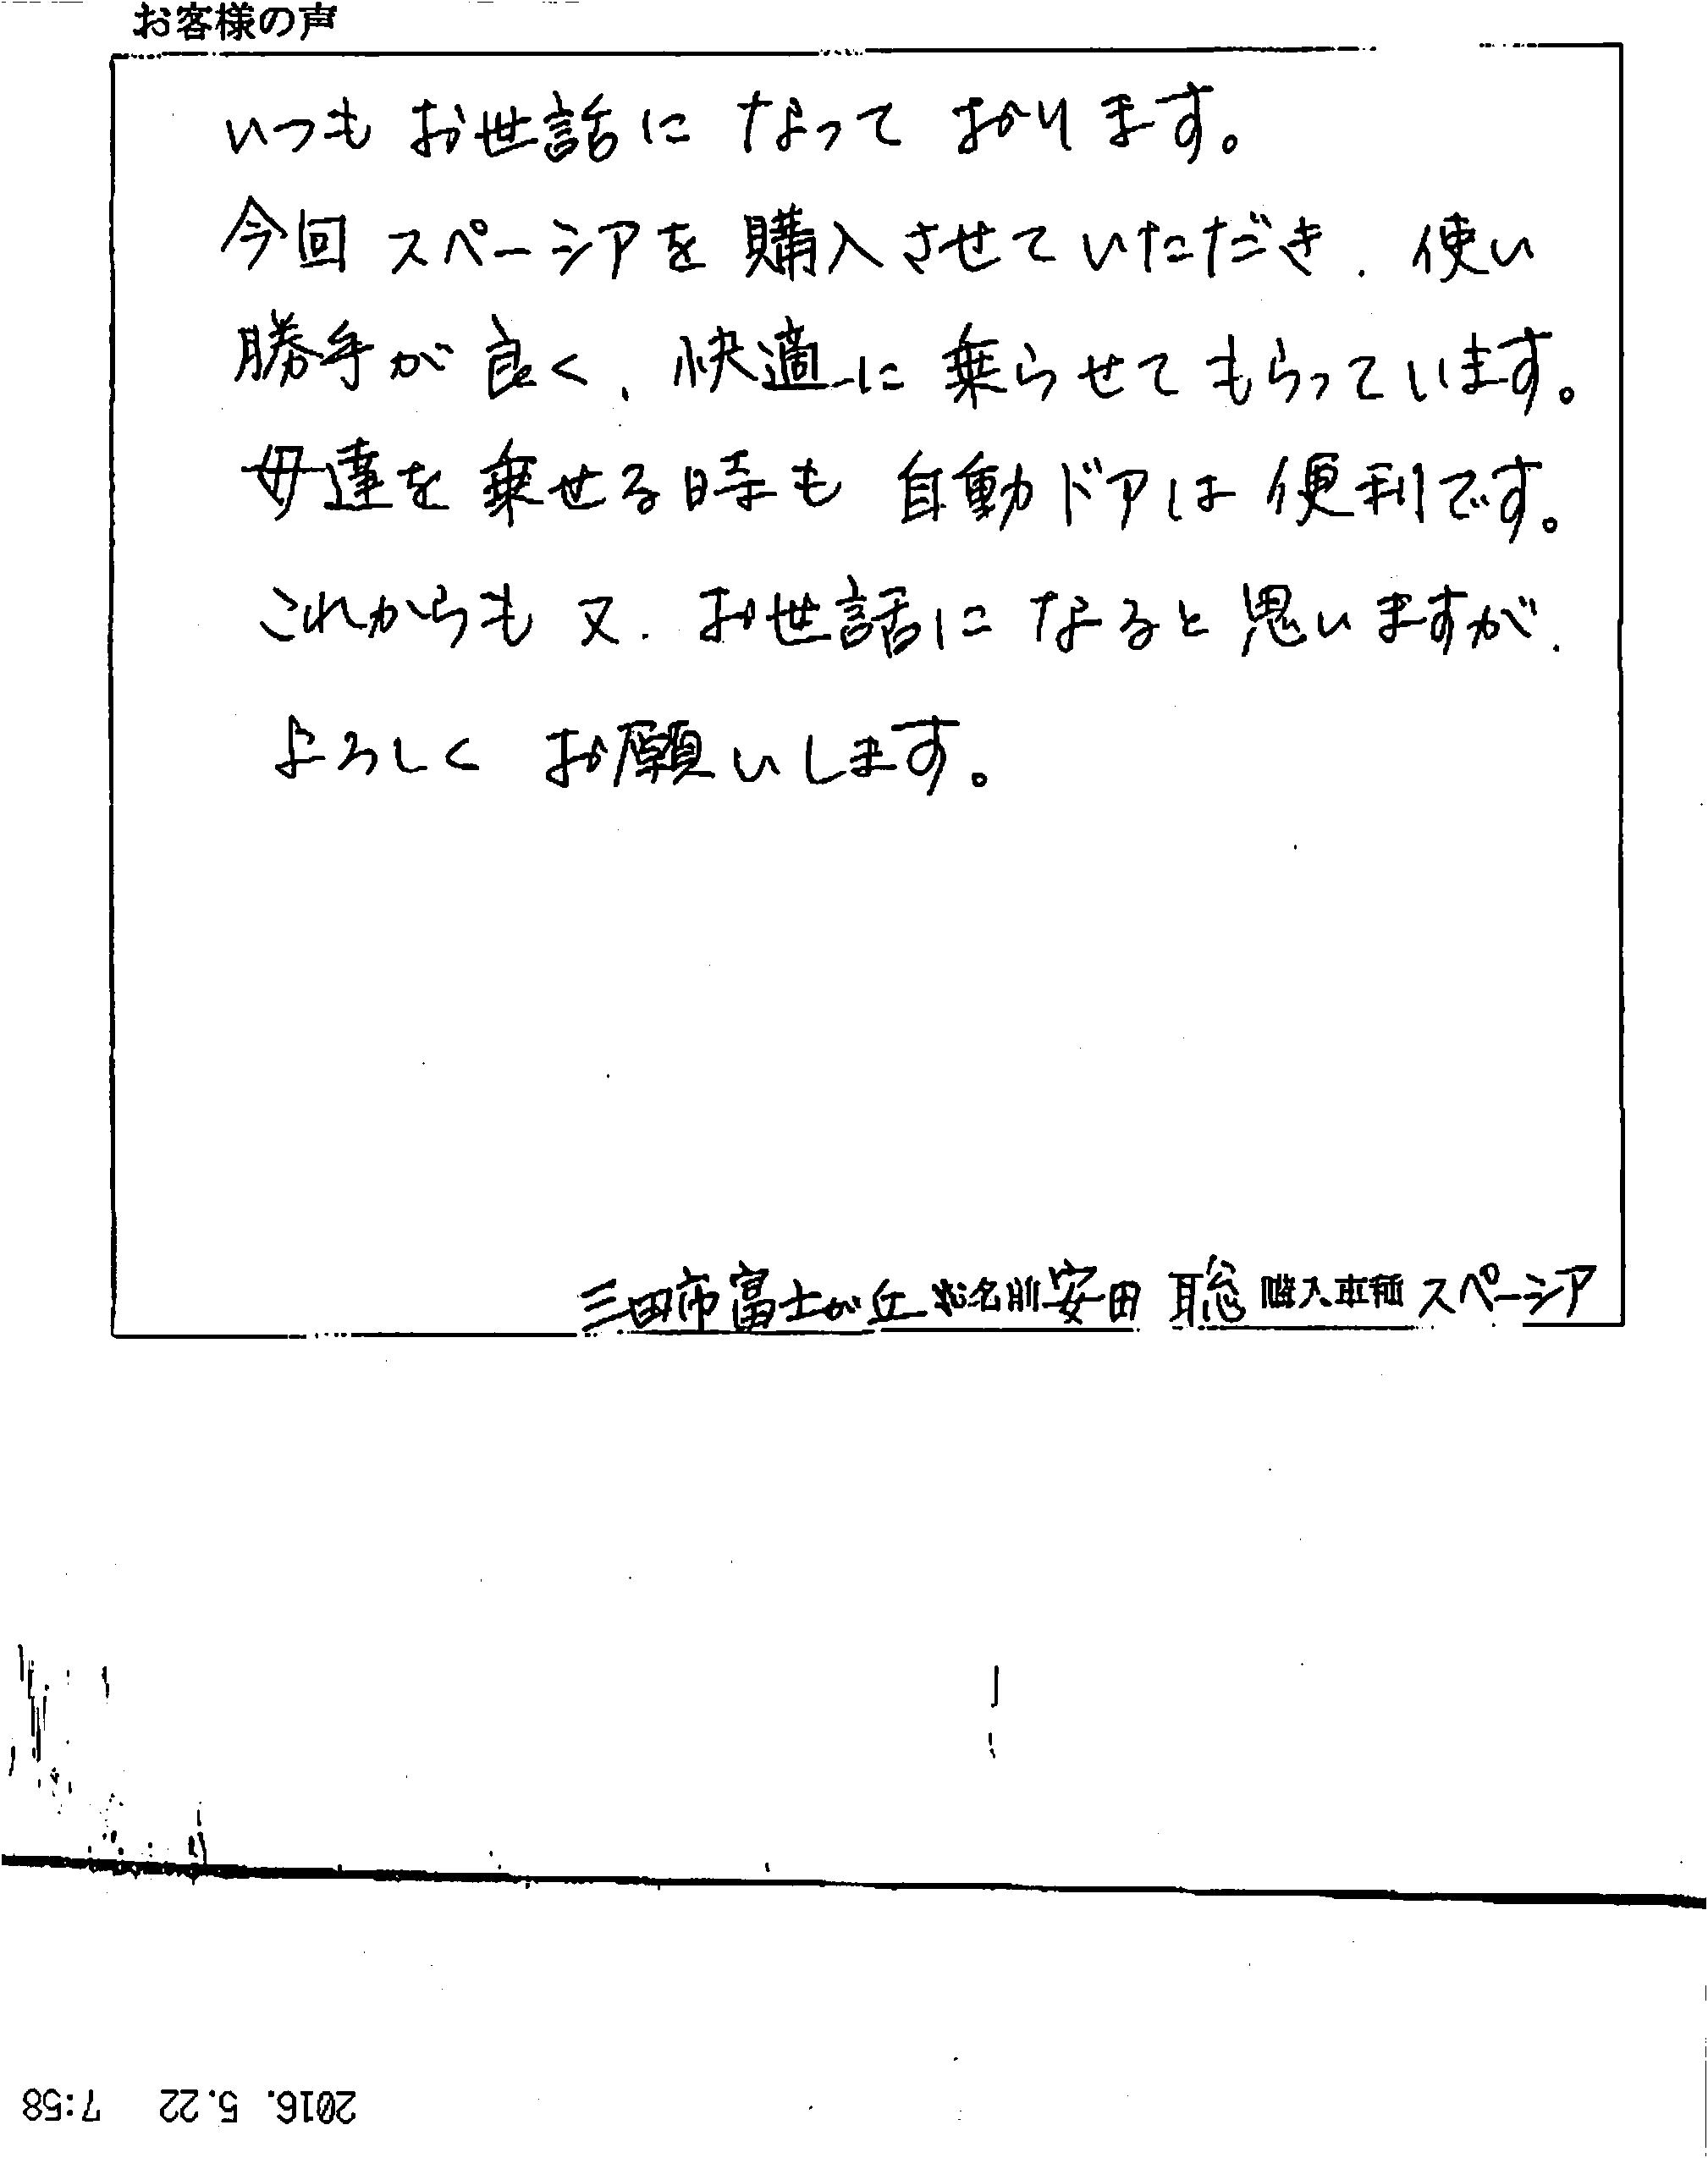 お客様の声
いつもお世話になっております。
今回スペーシアを購入させていただき、使い
勝手が良く、快適に乗らせてもらっています。
母達を乗せる時も自動ドアは便利です。
これからも又、お世話になると思いますが、
よろしくお願いします。
三田市富士が丘 お名前 安田 聡 購入車種 スペーシア
2016. 5.22 7:58